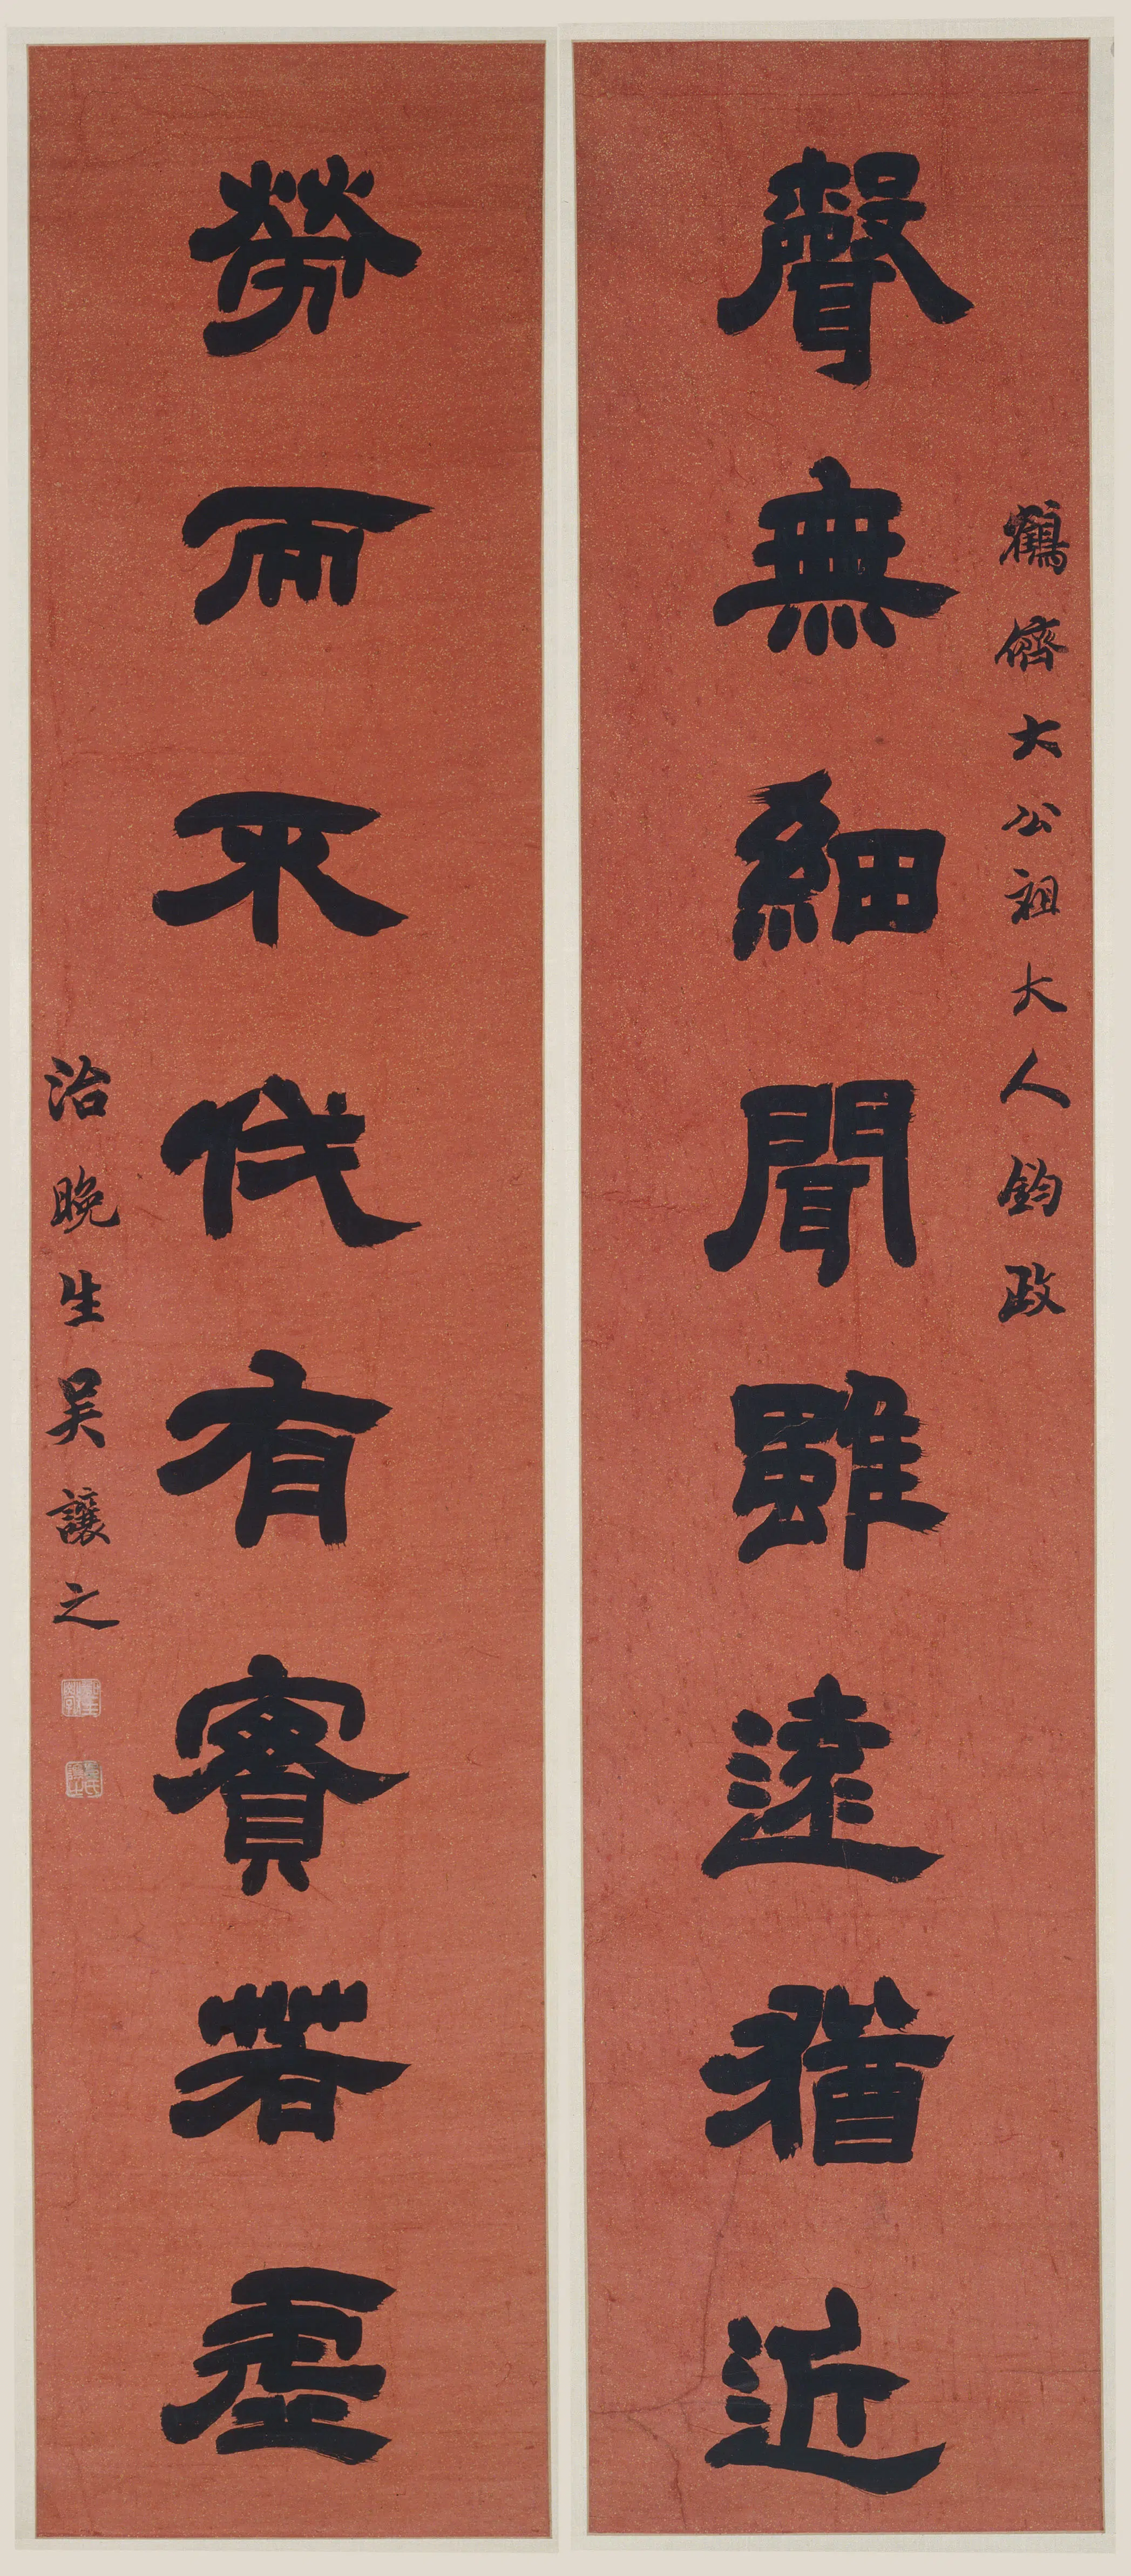 鶴儕大公祖大人鈞政
聲無細聞雖遠猶近
勞而不伐有實若虛
治晚生吳讓之